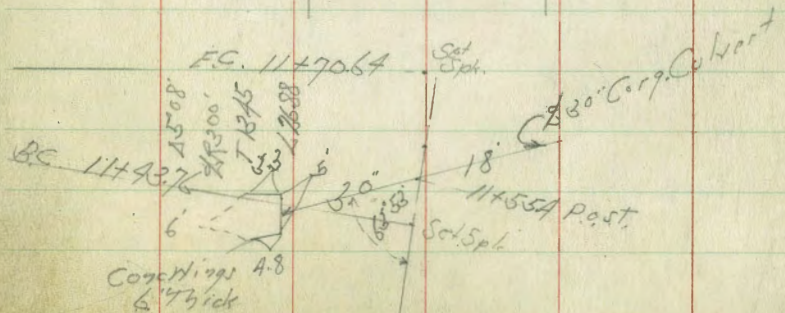 E.C. 11+70.64
Set
Spk.
℄ 30" Corg. Culvert
Δ 5°08'
℄R 300'
T 13.45
L 26.88
B.C. 11+43.76
3.3
6'
20"
18'
11+55.4 P.o.s.t.
Set. Spk.
6'
4.8
Conc Wings
6" Thick